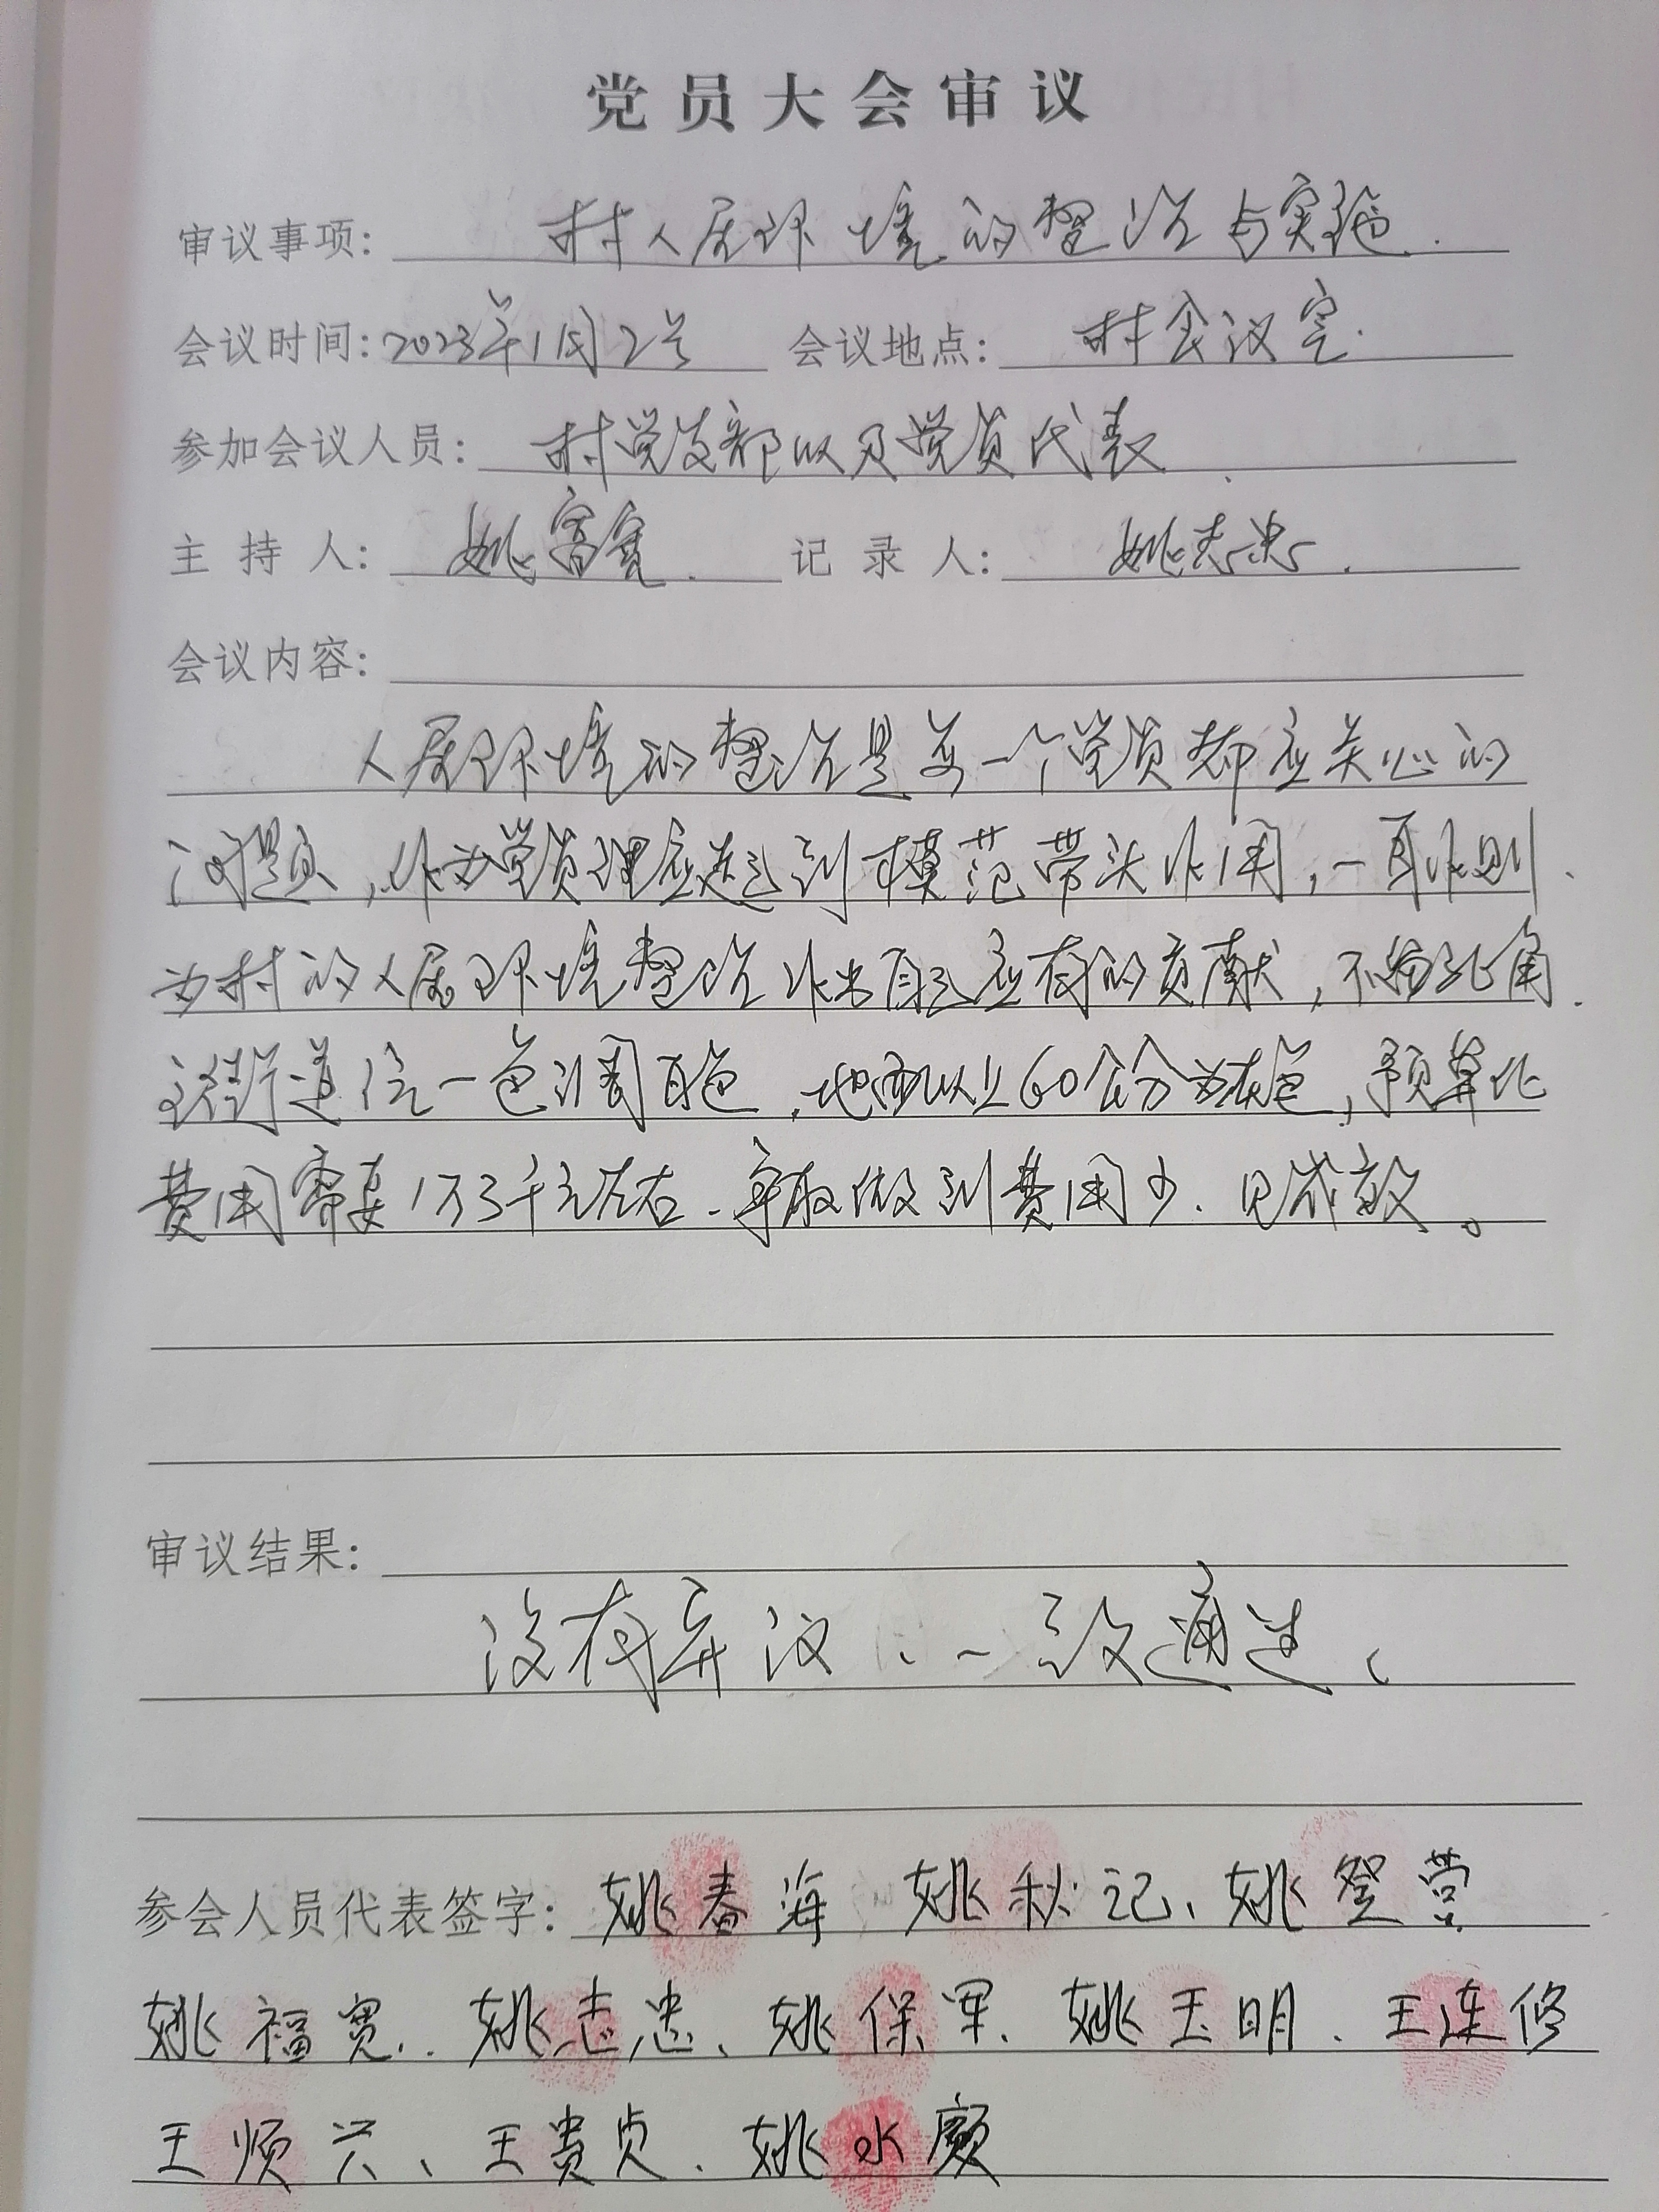 党员大会审议
审议事项: 村人居环境的整治与实施.
会议时间: 2023年1月2号 会议地点: 村会议室.
参加会议人员: 村党支部以及党员代表.
主持人: 姚富宽. 记录人: 姚志忠.
会议内容:
人居环境的整治是每一个党员都应关心的
问题,作为党员理应起到模范带头作用,一
为村的人居环境整治作出自己应有的贡献,不留死角.
街道 一色 白色,地面以上60公分为灰色,预算
费用需要1万3千元左右.争取做到费用少.见成效。
审议结果:
没有异议、一致通过、
参会人员代表签字: 姚春海 姚秋记、姚登营
姚福宽.姚志忠、姚保军.姚玉明.王连修
王顺兴、王贵贞.姚水